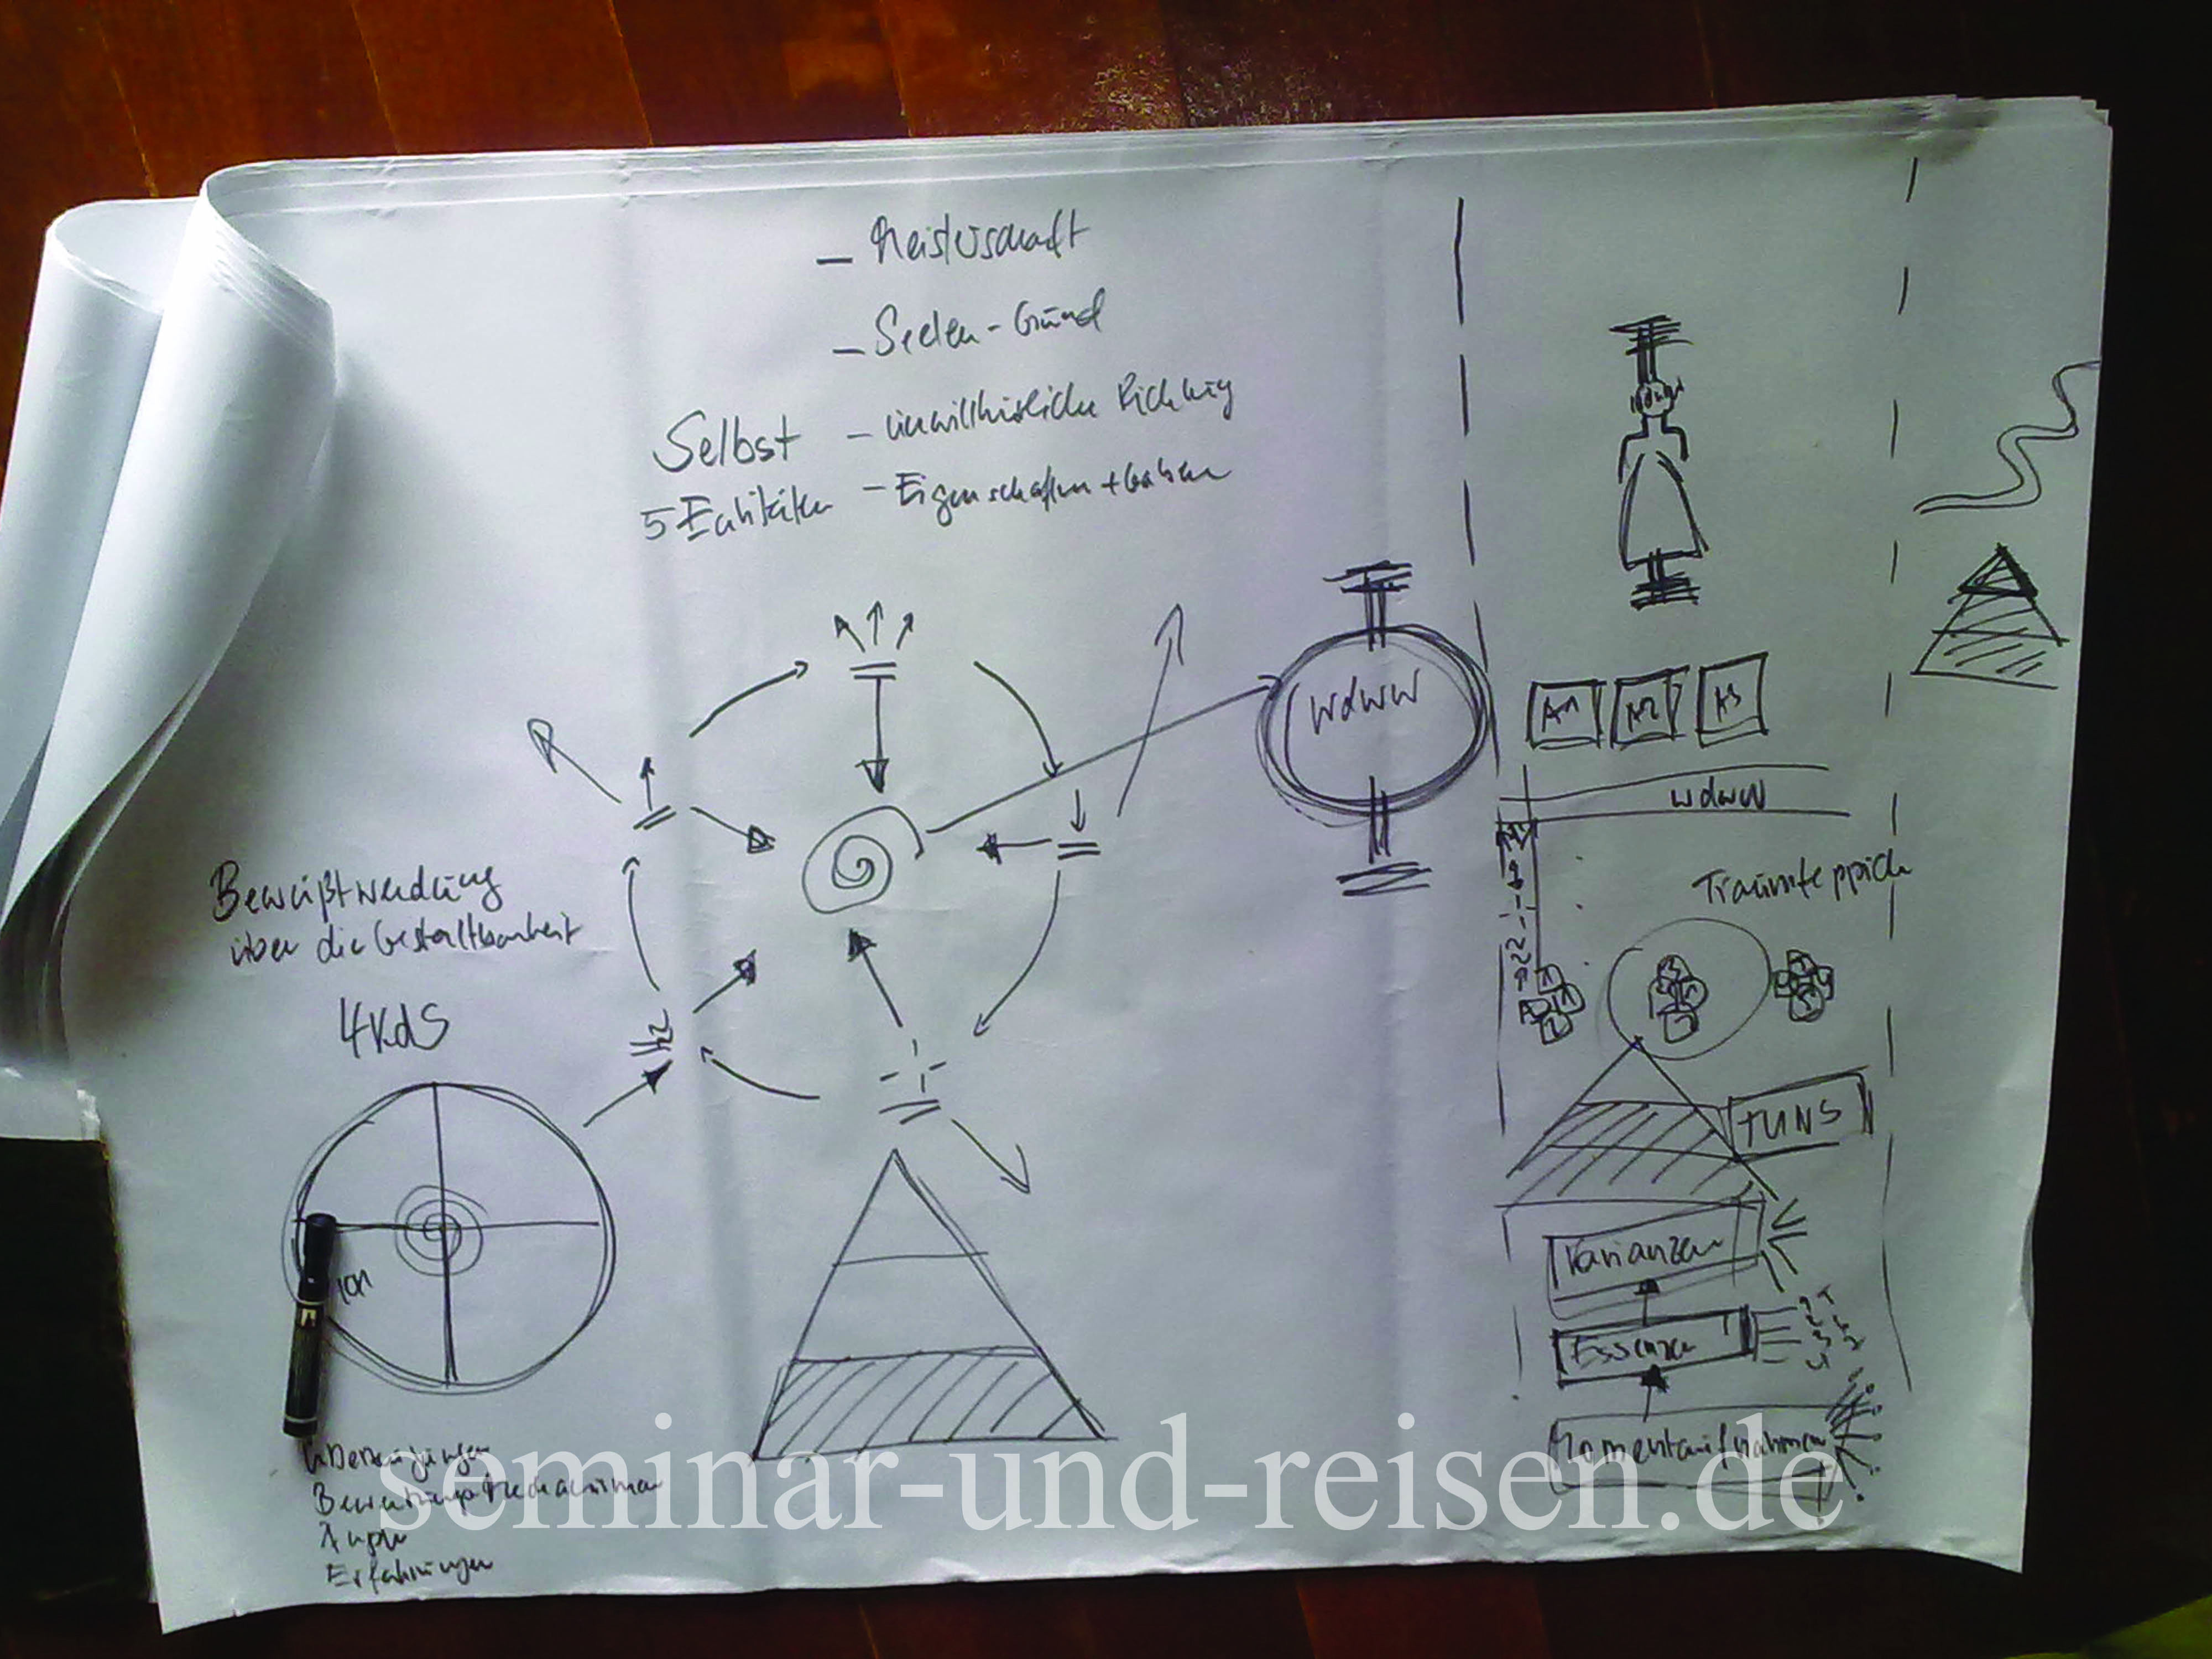 - Meisterschaft
- Seelen-Grund
Selbst - unwillkürliche Richtung
5 Entitäten - Eigenschaften + Gaben
WdWW
A1 A2 A3
WdWW
Traumteppich
Bewußtwerdung
über die Gestaltbarkeit
4KdS
TUNS
Varianzen
Essenzen
Momentaufnahmen
Überzeugungen
Ängste
Erfahrungen
seminar-und-reisen.de